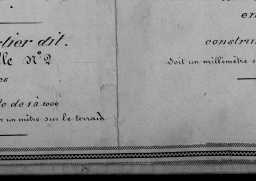 tier dit.
lle N° 2
le de 1 à 1000
un mètre sur le terrain
en
constru
Soit un millimètre